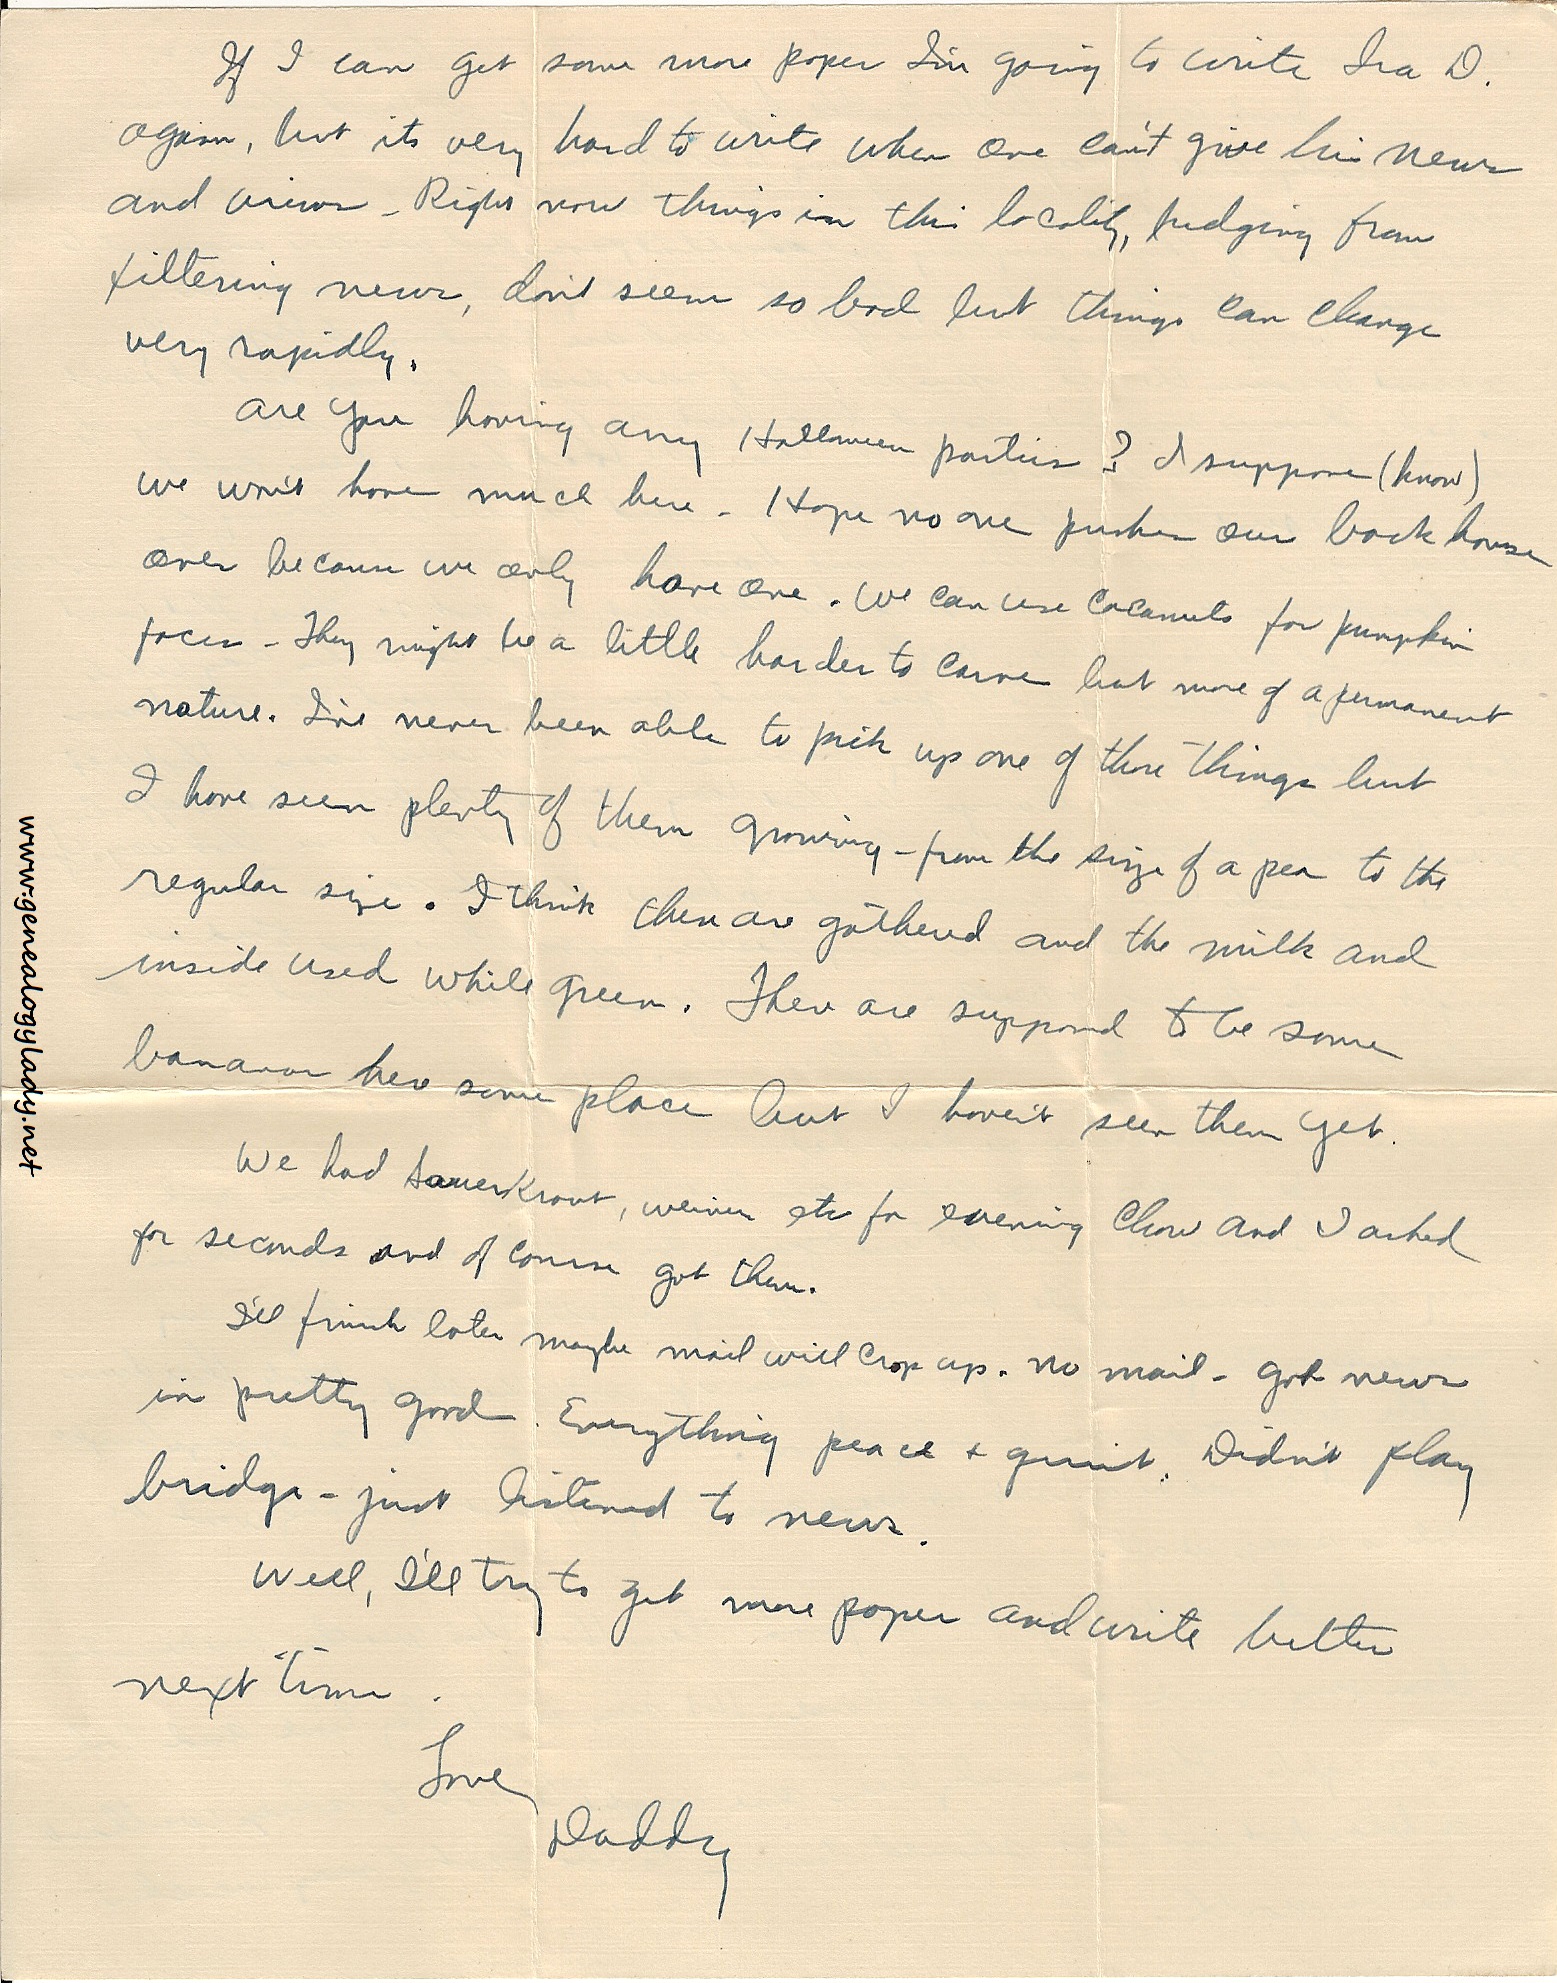 If I can get some more paper I'm going to write Ira D.
again, but its very hard to write when one can't give him news
and views – Right now things in this locality, judging from
filtering news, don't seem so bad but things can change
very rapidly.
Are you having any Halloween parties? I suppose (know)
we won't have much here – Hope no one pushes our back house
over because we only have one. We can use cocoanuts for pumpkin
faces – They might be a little harder to carve but more of a permanent
nature. I've never been able to pick up one of those things but
I have seen plenty of them growing – from the size of a pea to the
regular size. I think these are gathered and the milk and
inside used while green. There are supposed to be some
bananas here some place but I haven't seen them yet.
We had sauerkraut, weiners etc for evening chow and I asked
for seconds and of course got them.
I'll finish later maybe mail will crop up. No mail – got news
in pretty good. Everything peace + quiet. Didn't play
bridge – just listened to news.
Well, I'll try to get more paper and write better
next time.
Love
Daddy
www.genealogylady.net